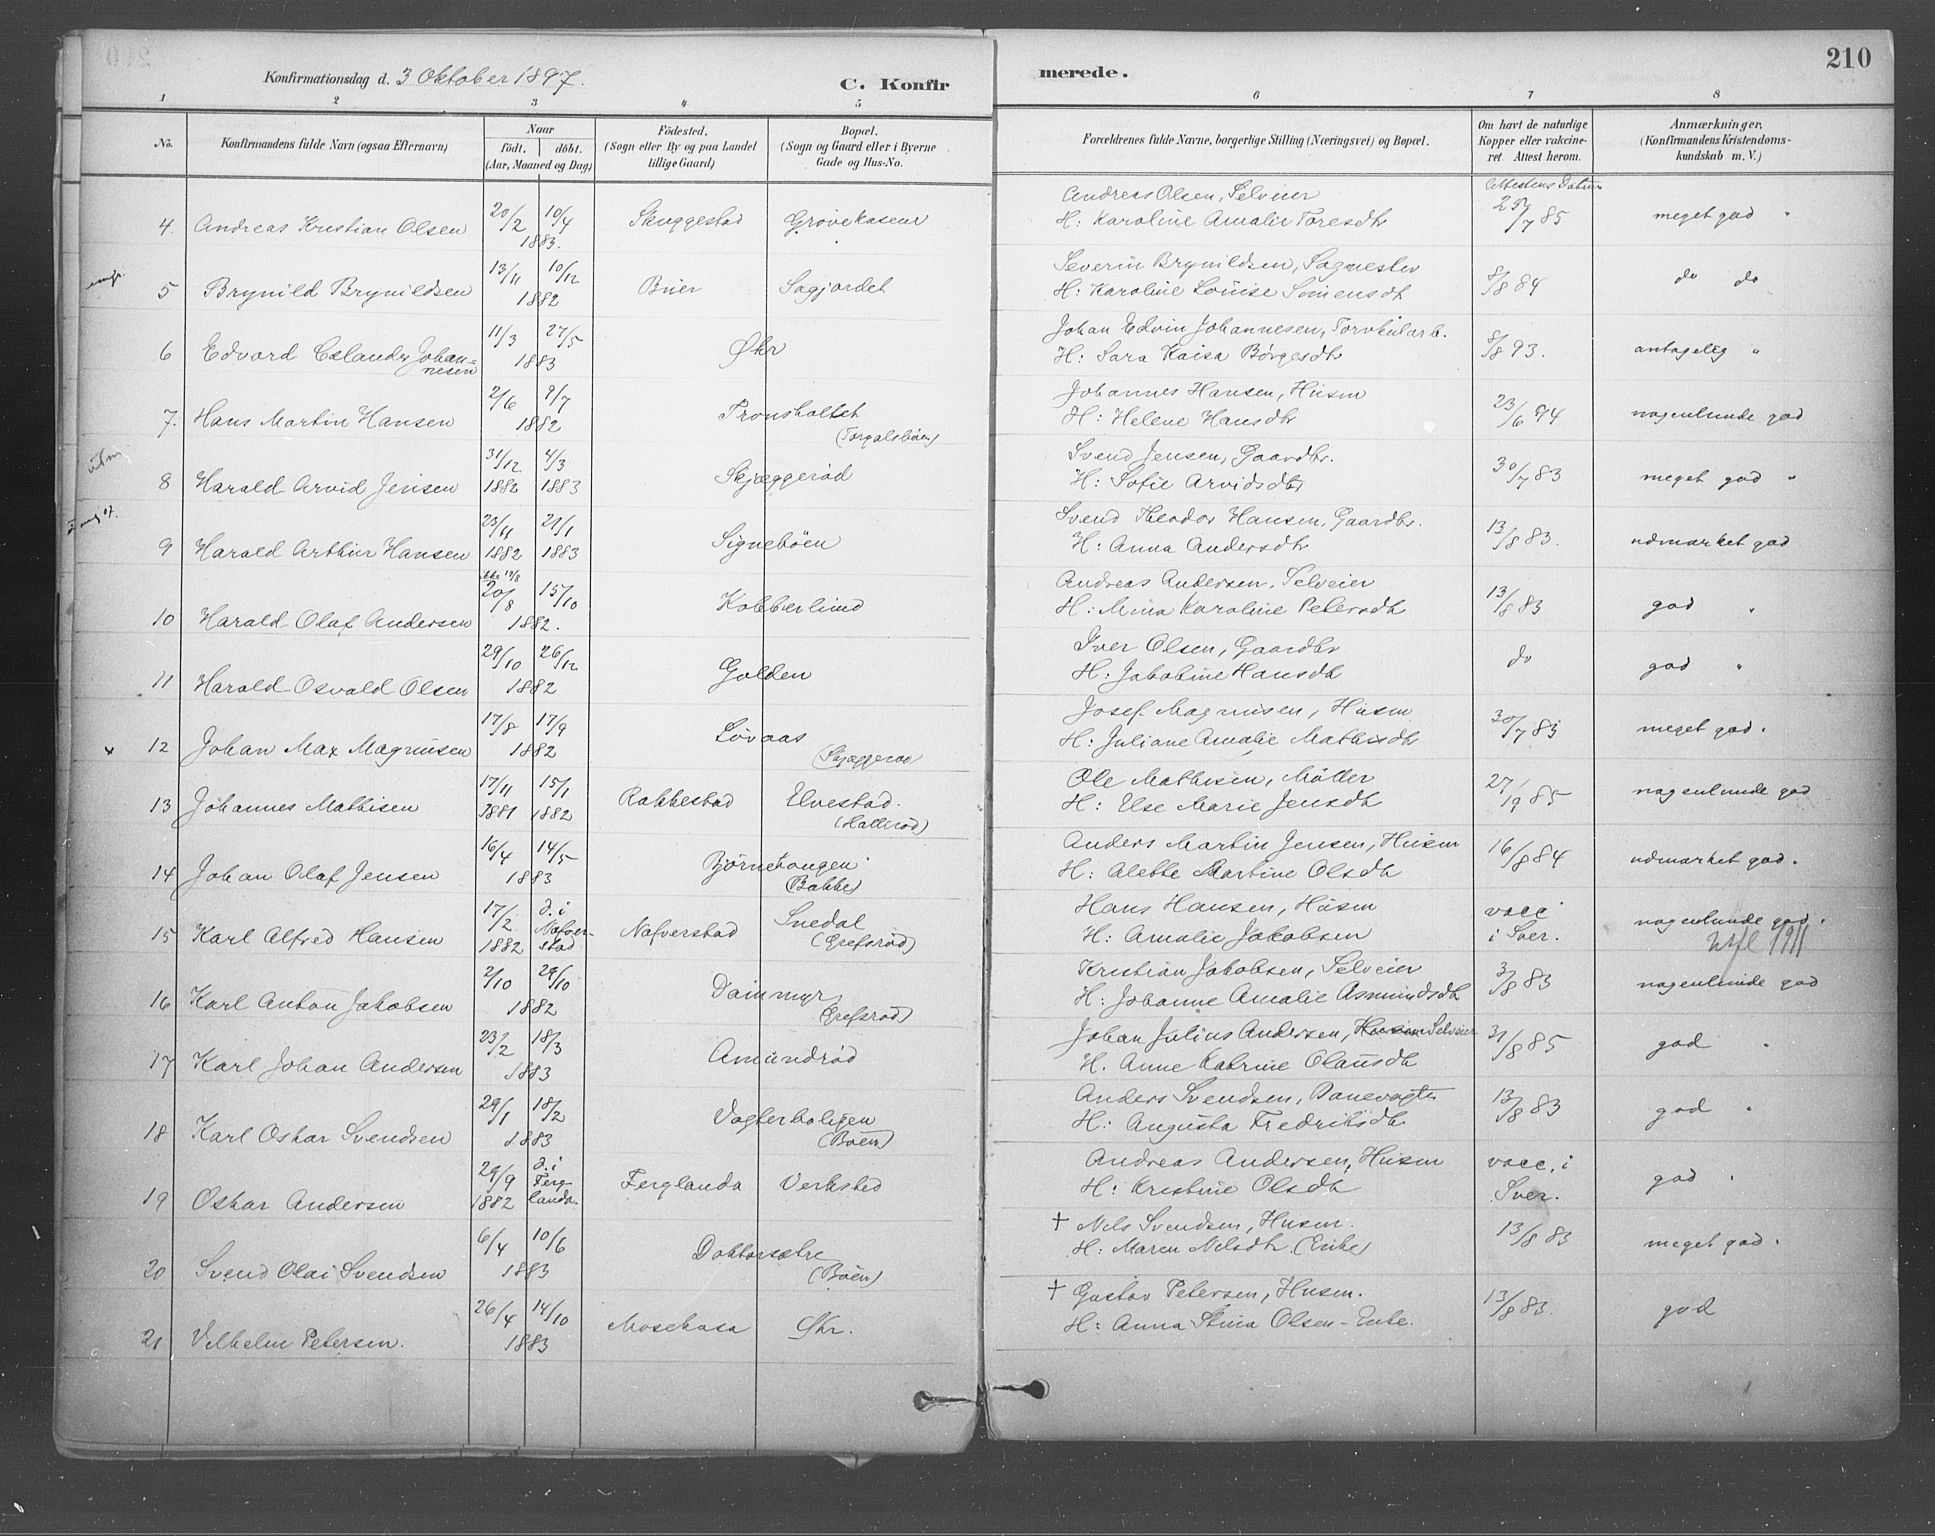 210
Konfirmationsdag d. 3 Oktober 1897.
C. Konfir
merede.
1 2 3 4 5 6 7 8
No.
Konfirmandens fulde Navn (ogsaa Efternavn)
Naar
født. døbt.
(Aar, Maaned og Dag)
Fødested.
(Sogn eller By og paa Landet
tillige Gaard)
Bopæl.
(Sogn og Gaard eller i Byerne
Gade og Hus-No.
Forældrenes fulde Navne, borgerlige Stilling (Næringsvei) og Bopæl.
Om havt de naturlige
Kopper eller vakcine-
ret. Attest herom.
Anmærkninger.
(Konfirmandens Kristendoms-
kundskab m. V.)
Attestens Datum
4. Andreas Kristian Olsen 20/2 10/4 1883. Skuggestad Grövekasene Andreas Olsen, Selveier
H: Karoline Amalie Toresdtr 25/7 85 meget god "
5 Brynild Brynildsen 13/11 10/12 1882 Buer Sagjordet Severin Brynildsen, Sagmester
H: Karoline Louise Simensdt 8/8 84 do do
6 Edvard Johan=
nesen 11/3 27/5 1883 Økr Johan Edvin Johannesen,
H: Sara Kaisa Børgesdtr 8/8 93. antagelig "
7. Hans Martin Hansen 2/6 9/7 1882 Tronsholtet
(Torgalsbøen) Johannes Hansen, Husm
H: Helene Hansdtr 23/6 94 nogenlunde god
8 Harald Arvid Jensen 31/12 1882 4/3 1883 Skjæggerød Svend Jensen, Gaardbr.
H: Sofie Arvidsdtr 30/7 83 meget god "
9 Harald Arthur Hansen 23/11 1882 21/1 1883 Signebøen Svend Theodor Hansen, Gaardbr.
H: Anna Andersdtr 13/8 83. udmærket god
ikke 19/8
10 Harald Olaf Andersen 20/8 15/10 1882. Kobberlind Andreas Andersen, Selveier
H: Mina Karoline Petersdtr 13/8 83 god "
11 Harald Osvald Olsen 29/10 26/12 1882 Golden Iver Olsen, Gaardbr
H: Jakobine Hansdtr do god "
12 Johan Max Magnusen 17/8 17/9 1882 Løvaas
(Skjæggerød) Josef Magnusen, Husm
H: Juliane Amalie Mathisdtr 30/7 83 meget god.
13 Johannes Mathisen 17/11 1881 15/1 1882 Rakkestad Elvestad.
(Hallerød) Ole Mathisen, Møller
H: Else Marie Jensdtr 27/19 85 nogenlunde god
14 Johan Olaf Jensen 16/4 14/5 1883 Bjørnehaugen
(Bakke) Anders Martin Jensen, Husm
H: Alette Martine Olsdtr 16/8 84 udmærket god.
15 Karl Alfred Hansen 17/2 1882 d. i
Nafver-
stad Nafverstad Snedal
(Grefsrød) Hans Hansen, Husm
H: Amalie Jakobsen vacc
i Sver. nogenlunde god.
1911
16 Karl Anton Jakobsen 2/10 29/10 1882 Dammyr
(Grefsrød) Kristian Jakobsen, Selveier
H: Johanne Amalie Asmundsdtr 3/8 83 nogenlunde god
17 Karl Johan Andersen 23/2 18/3 1883 Amundrød Johan Julius Andersen, Husm Selveier
H. Anne Katrine Olausdtr 31/8 85 god "
18 Karl Oskar Svendsen 29/1 18/2 1883 Vogterboligen
(Bøen) Anders Svendsen, Banevogter
H: Augusta Fredriksdtr 13/8 83 god "
19 Oskar Andersen 29/9 1882 d. i
Ferg-
landa Ferglanda Verksted Andreas Andersen, Husm
H: Kristine Olsdtr vacc. i
Sver. god "
20 Svend Olai Svendsen 6/4 10/6 1883 Doktorsætre
(Bøen) † Nils Svendsen, Husm.
H: Maren Nilsdtr (Enke) 13/8 83 meget god.
21 Vilhelm Petersen. 26/4 14/10 1883 Mosekasa Økr. † Gustav Petersen, Husm.
H: Anna Stina Olsen - Enke. 13/8 83. god